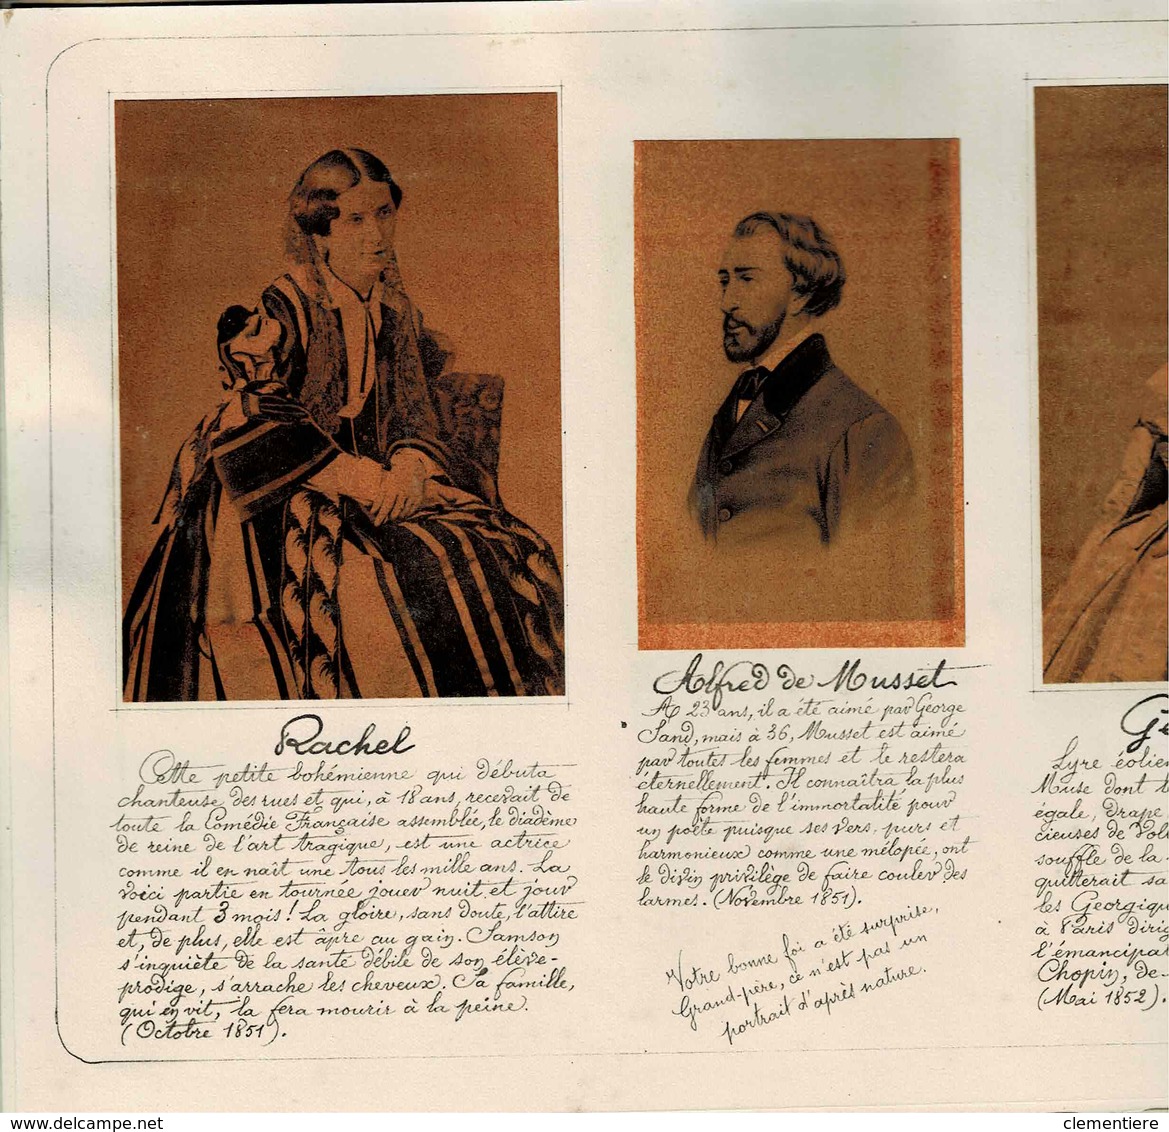 Rachel
Cette petite bohémienne qui débuta
chanteuse des rues et qui, à 18 ans, recevait de
toute la Comédie Française assemblée, le diadème
de reine de l'art tragique, est une actrice
comme il en naît une tous les mille ans. La
voici partie en tournée jouer nuit et jour
pendant 3 mois! La gloire, sans doute, l'attire
et, de plus, elle est âpre au gain. Samson
s'inquiète de la santé débile de son élève-
prodige, s'arrache les cheveux. Sa famille,
qui en vit, la fera mourir à la peine.
(Octobre 1851).
Alfred de Musset
A 23 ans, il a été aimé par George
Sand, mais à 36, Musset est aimé
par toutes les femmes et le restera
éternellement. Il connaîtra la plus
haute forme de l'immortalité pour
un poète puisque ses vers, purs et
harmonieux comme une mélopée, ont
le divin privilège de faire couler des
larmes. (Novembre 1851).
Votre bonne foi a été surprise,
Grand-père, ce n'est pas un
portrait d'après nature.
Ge
Lyre éolien
Muse dont t
égale, drape
cieuses de Vol
souffle de la
quitterait sa
les Georgiqu
à Paris dirig
l'émancipa
Chopin, de-
(Mai 1852).
www.delcampe.net
clementiere